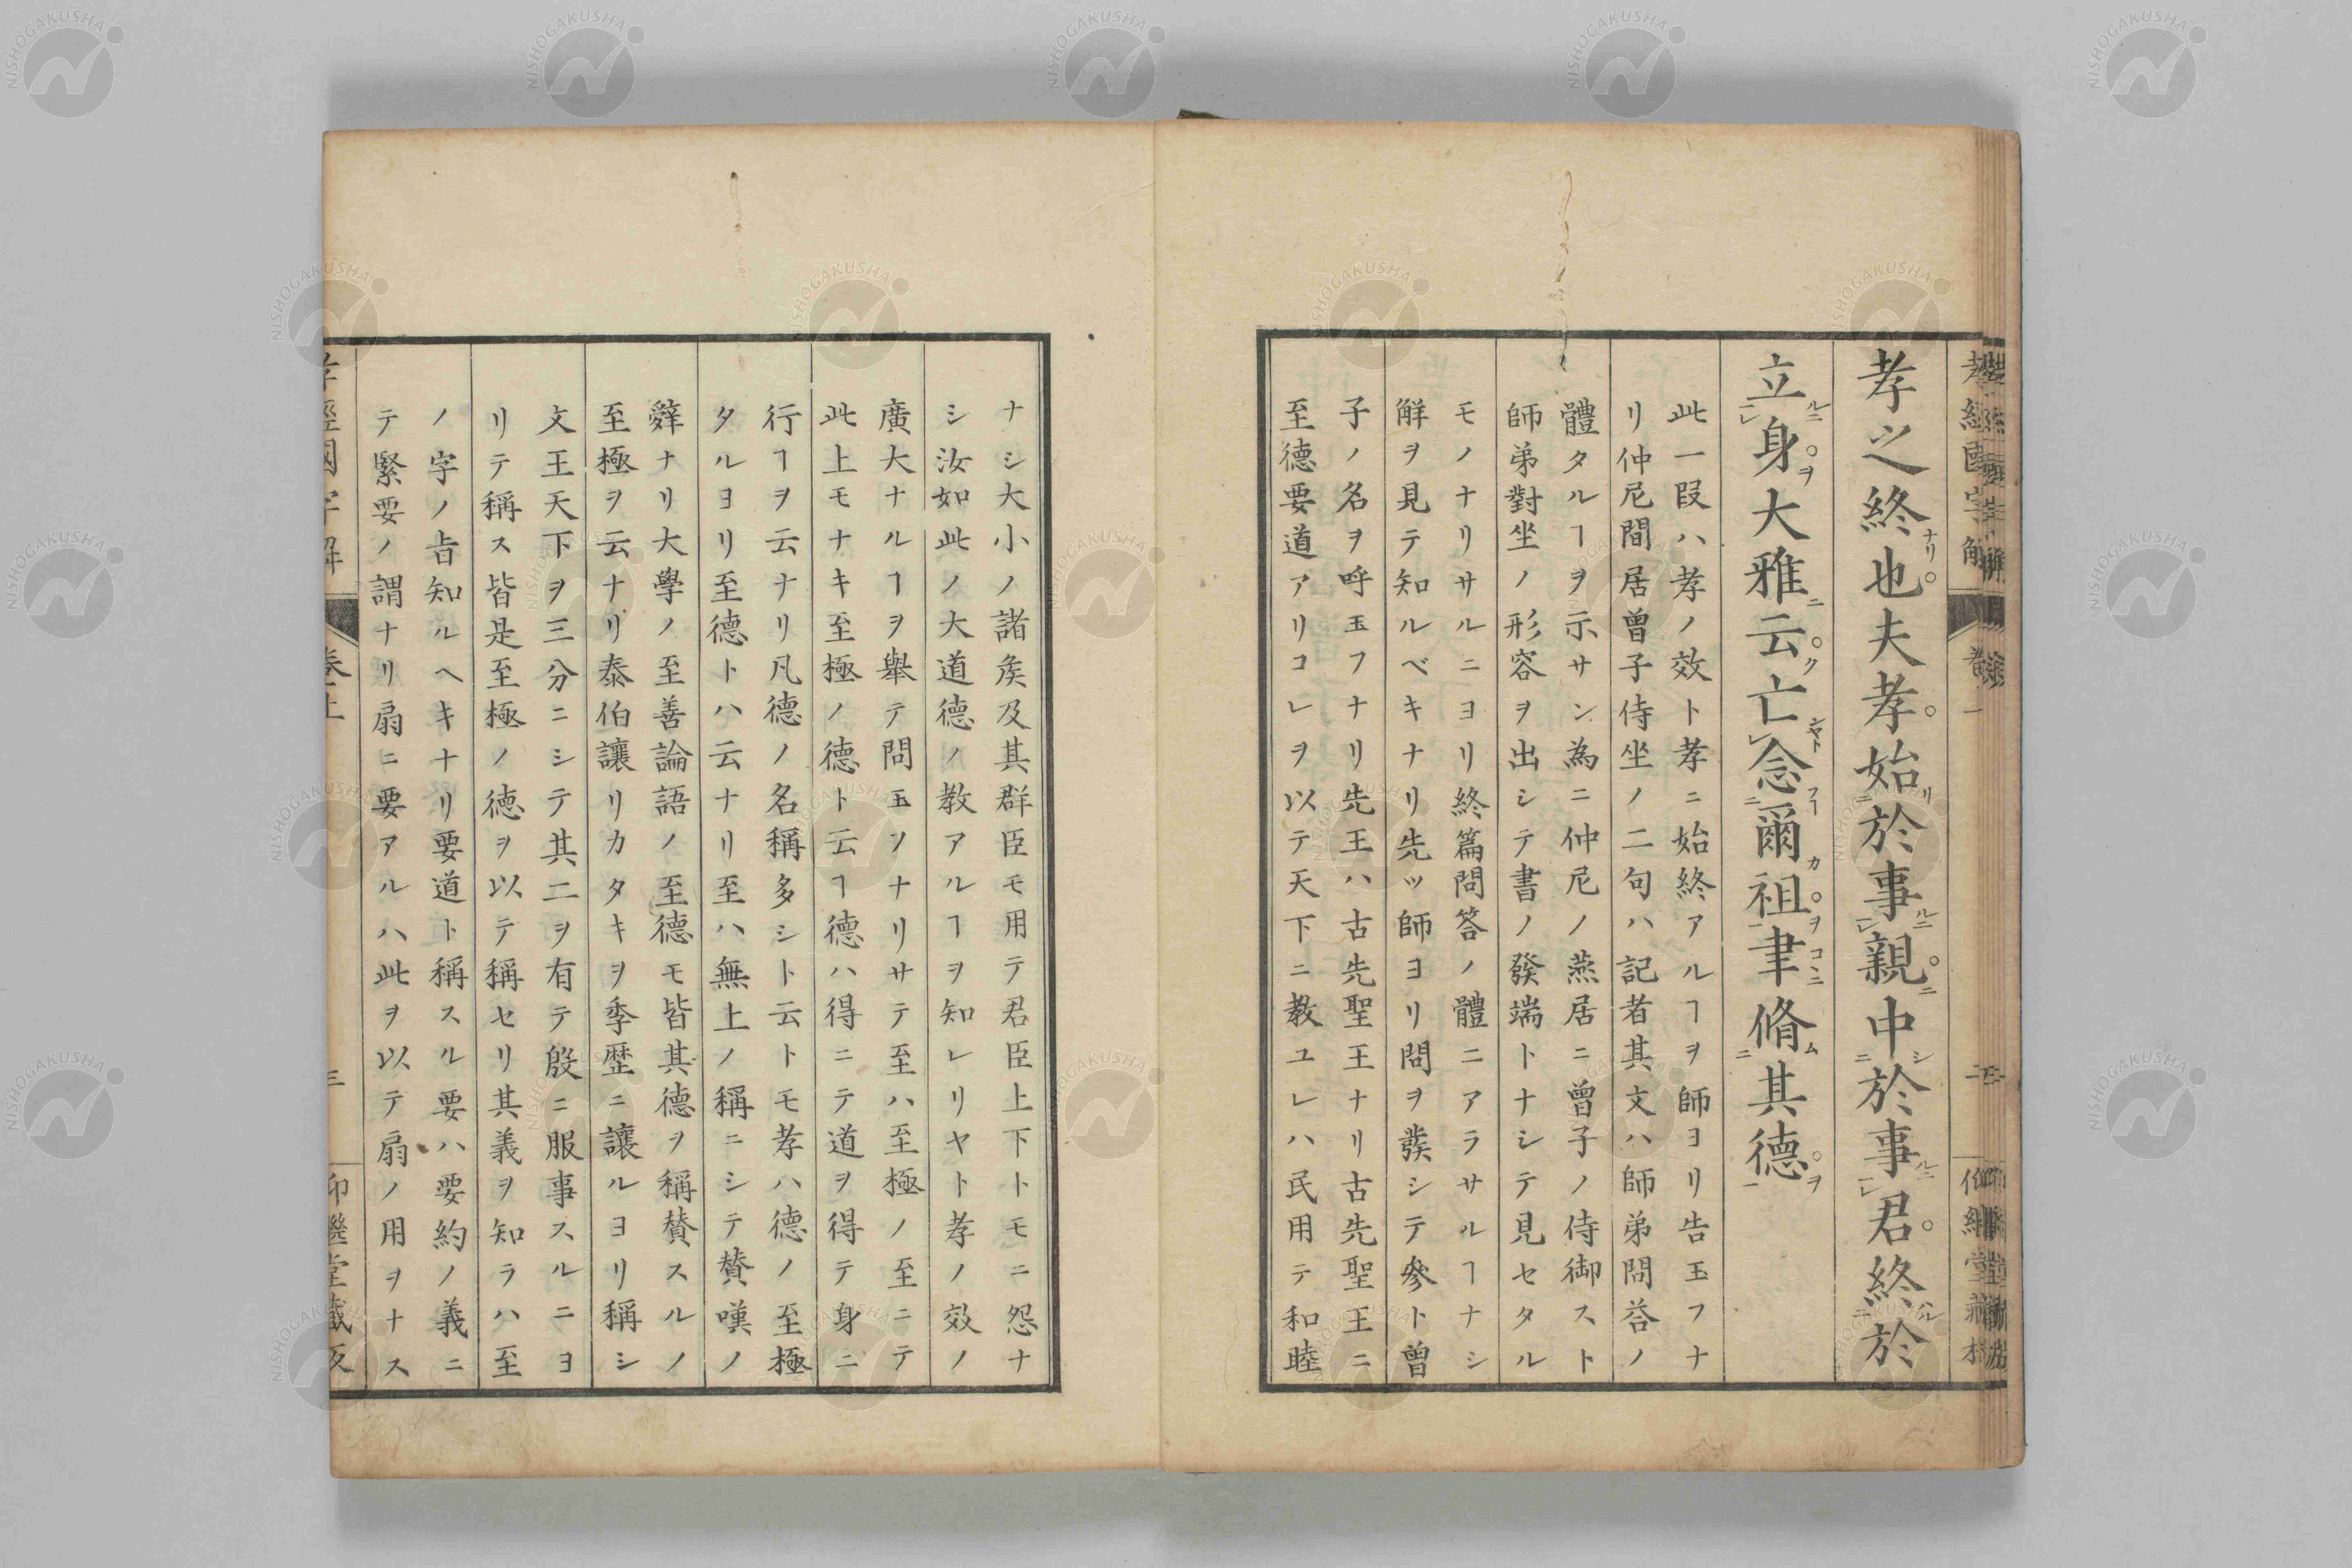 孝之終也夫孝始於事親中於事君終於
立身大雅云亡念爾祖聿脩其德
此一段ハ孝ノ效ト孝ニ始終アルヿヲ師ヨリ告玉フナ
リ仲尼間居曾子侍坐ノ二句ハ記者其文ハ師弟問荅ノ
體タルヿヲ示サン為ニ仲尼ノ燕居ニ曾子ノ侍御スト
師弟對坐ノ形容ヲ出シテ書ノ發端トナシテ見セタル
モノナリサルニヨリ終篇問答ノ體ニアラサルヿナシ
解ヲ見テ知ルベキナリ先ッ師ヨリ問ヲ發シテ參ト曾
子ノ名ヲ呼玉フナリ先王ハ古先聖王ナリ古先聖王ニ
至德要道アリコレヲ以テ天下ニ教ユレハ民用テ和睦
ナシ大小ノ諸矦及其群臣モ用テ君臣上下トモニ怨ナ
シ汝如此ノ大道德ノ教アルヿヲ知レリヤト孝ノ效ノ
廣大ナルヿヲ舉テ問玉フナリサテ至ハ至極ノ至ニテ
此上モナキ至極ノ德ト云ヿ德ハ得ニテ道ヲ得テ身ニ
行ヿヲ云ナリ凡德ノ名稱多シト云トモ孝ハ德ノ至極
タルヨリ至德トハ云ナリ至ハ無上ノ稱ニシテ賛嘆ノ
辤ナリ大學ノ至善論語ノ至德モ皆其德ヲ稱賛スルノ
至極ヲ云ナリ泰伯讓リカタキヲ季歴ニ讓ルヨリ稱シ
文王天下ヲ三分ニシテ其二ヲ有テ殷ニ服事スルニヨ
リテ稱ス皆是至極ノ德ヲ以テ稱セリ其義ヲ知ラハ至
ノ字ノ旨知ルヘキナリ要道ト稱スル要ハ要約ノ義ニ
テ緊要ノ謂ナリ扇ニ要アルハ此ヲ以テ扇ノ用ヲナス
孝經國字解 卷上 三